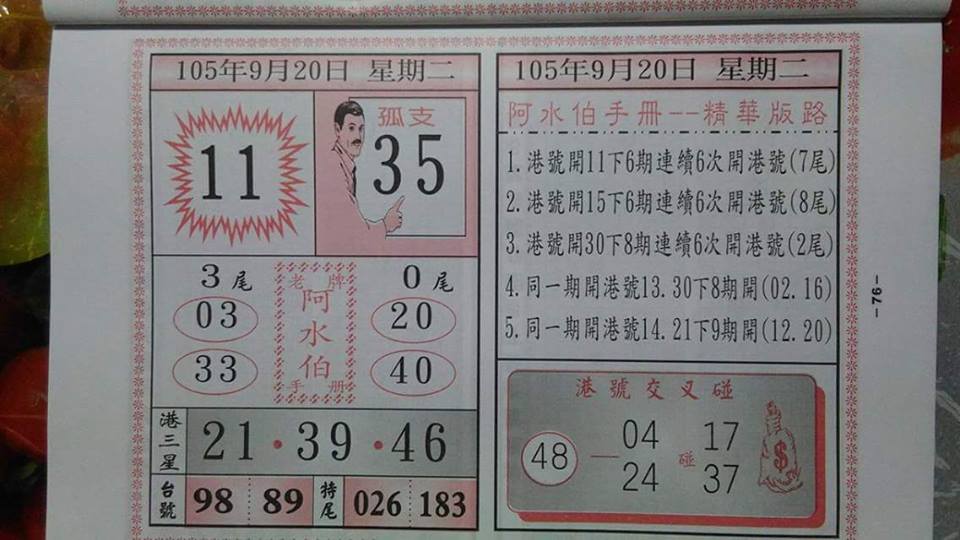 105年9月20日 星期二
11
孤支
35
3尾
03
33
老牌
阿水伯
手册
0尾
20
40
港三星
21·39·46
台號
98 89
特尾
026 183
105年9月20日 星期二
阿水伯手冊--精華版路
1.港號開11下6期連續6次開港號(7尾)
2.港號開15下6期連續6次開港號(8尾)
3.港號開30下8期連續6次開港號(2尾)
4.同一期開港號13.30下8期開(02.16)
5.同一期開港號14.21下9期開(12.20)
港號交叉碰
48 — 04 24 碰 17 37
$
-76-